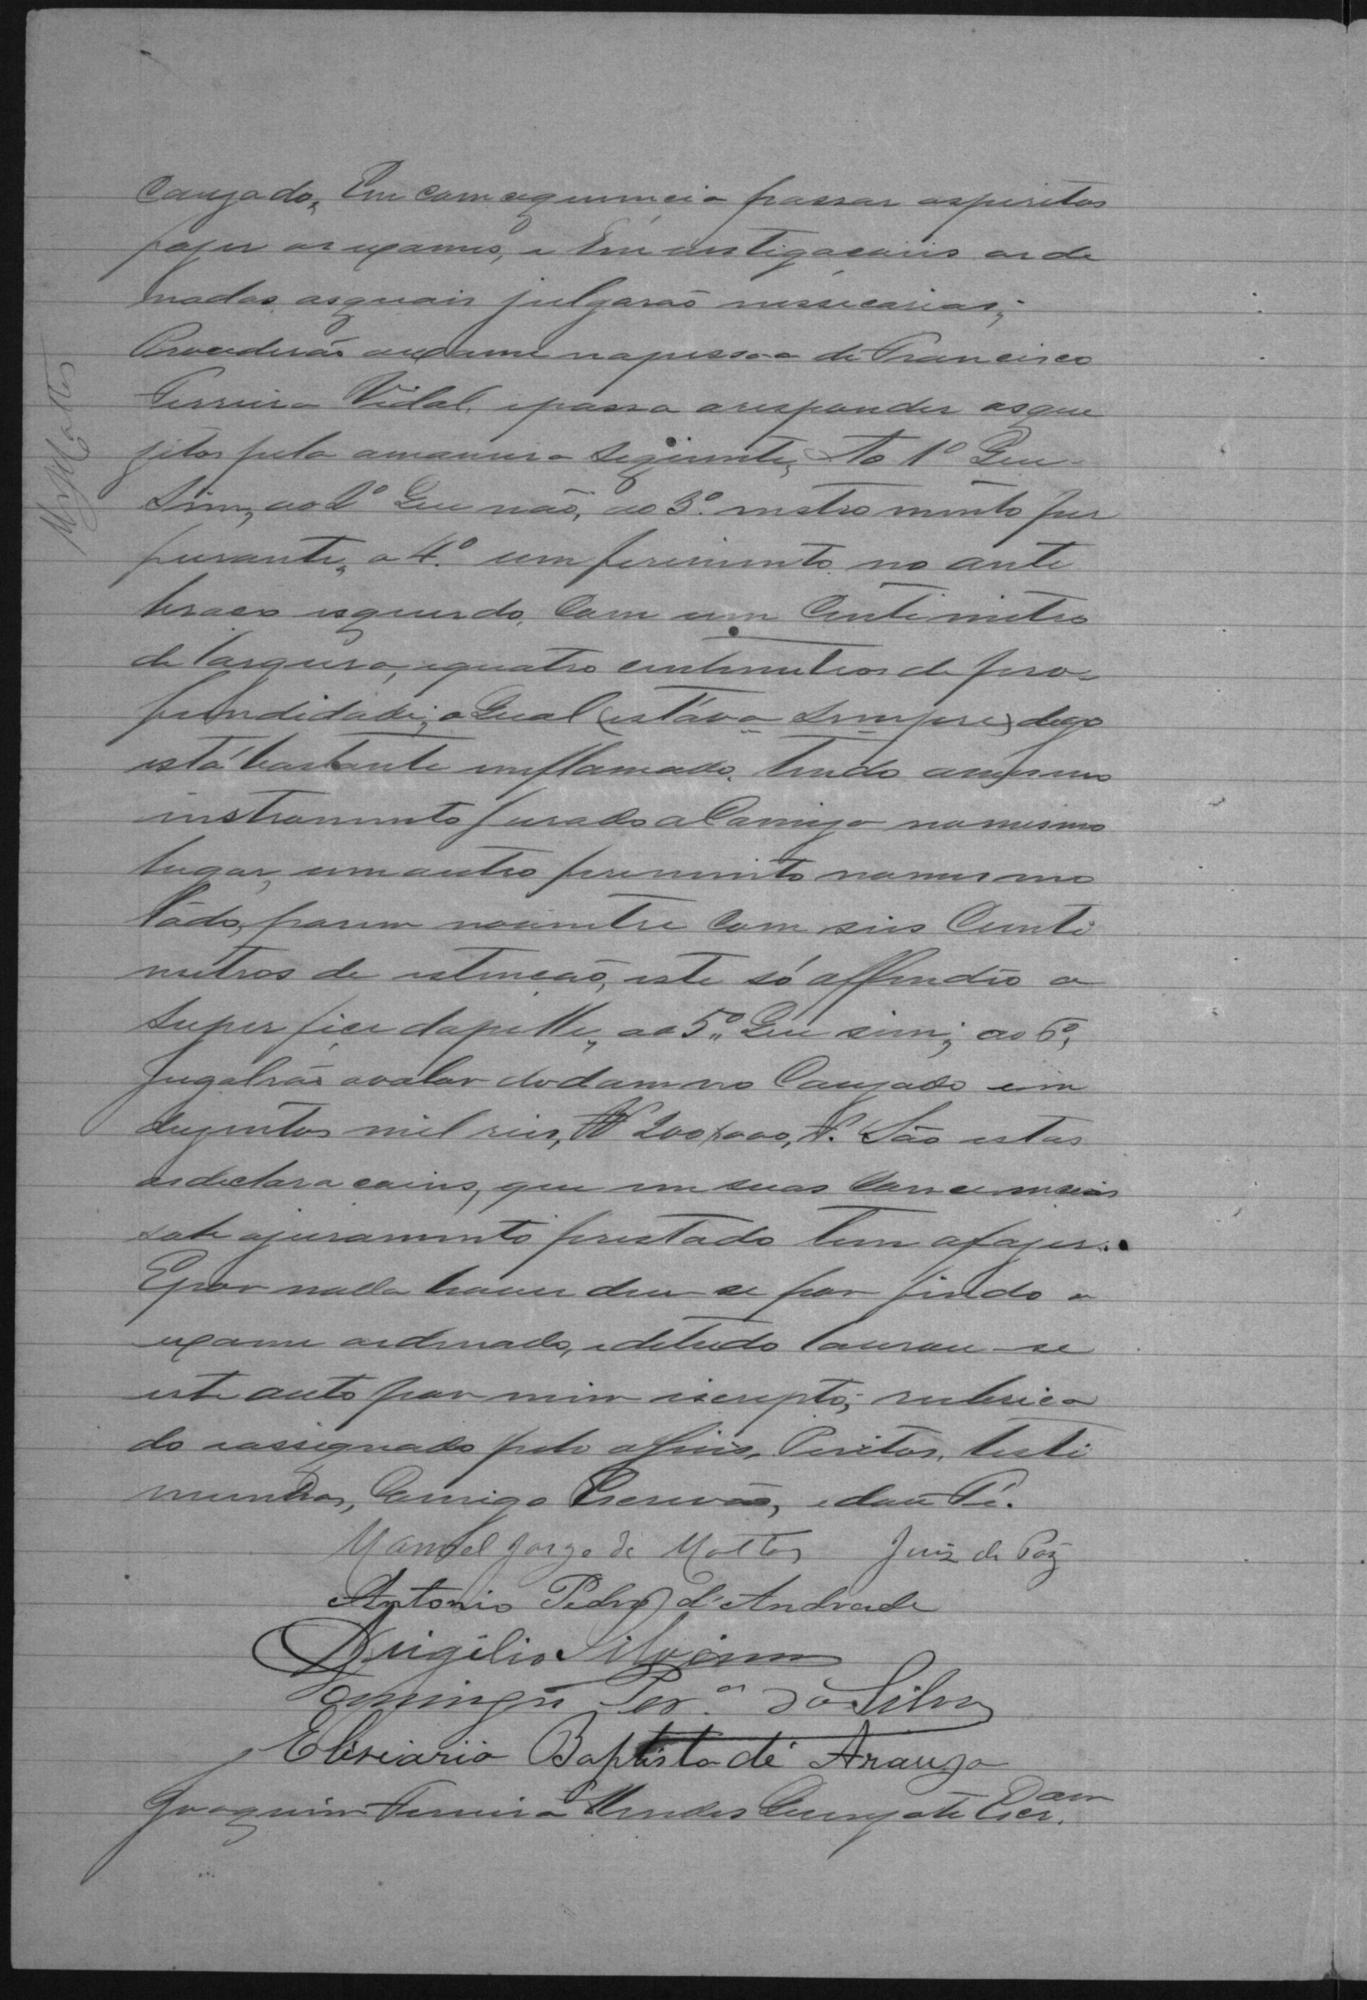 MJMattos
Cauzado, Em comcequencia passar osperitos
fazer os exames, e Investigacoiis orde
nadas asquais julgarão nessicarias;
Procederão aexame napessoa de Francisco
Ferreira Vidal, epassa aresponder asque
zitos pela amaneira Seguinte, Ao 1º Que
Sim, ao 2º Que não, ao 3º. instromento per
furante, o 4º. um ferimento no ante
braço isquerdo, Com um Centimitro
de largura, equatro centimetros de pro-
fundidade; o Qual (estáva Sempre) digo
está bastante imflamado, tendo omesmo
instromento furado a Camiza nomesmo
lugar, umoutro ferimento nomesmo
Ládo, porem noventre Com seis Centi
metros de estenção, este só affendio a
Superficie dapelle, ao 5º, Que sim; ao 6º,
Jugalrão ovalor dodamno Cauzado em
duzentos mil reis, 200,000, São estas
asdeclaracoins, que em suas Conciencias
sob ojuramento prestado tem afazer.
Epor nada haver deu-se por findo o
exame ordenado, edetudo lavrou-se
este auto por mim iscripto; rubrica
do eassignado pelo oJuis, Peritos, testi
munhas, Comigo Escrivão, edou Fé.
Manoel Jorge de Mattos Juiz de Paz
Antonio Pedro d'Andrade
Virgilio Silva
Domingos Per.ª da Silva
Elisiario Baptista de Araujo
Joaquim Ferreira Mendes Escr.am